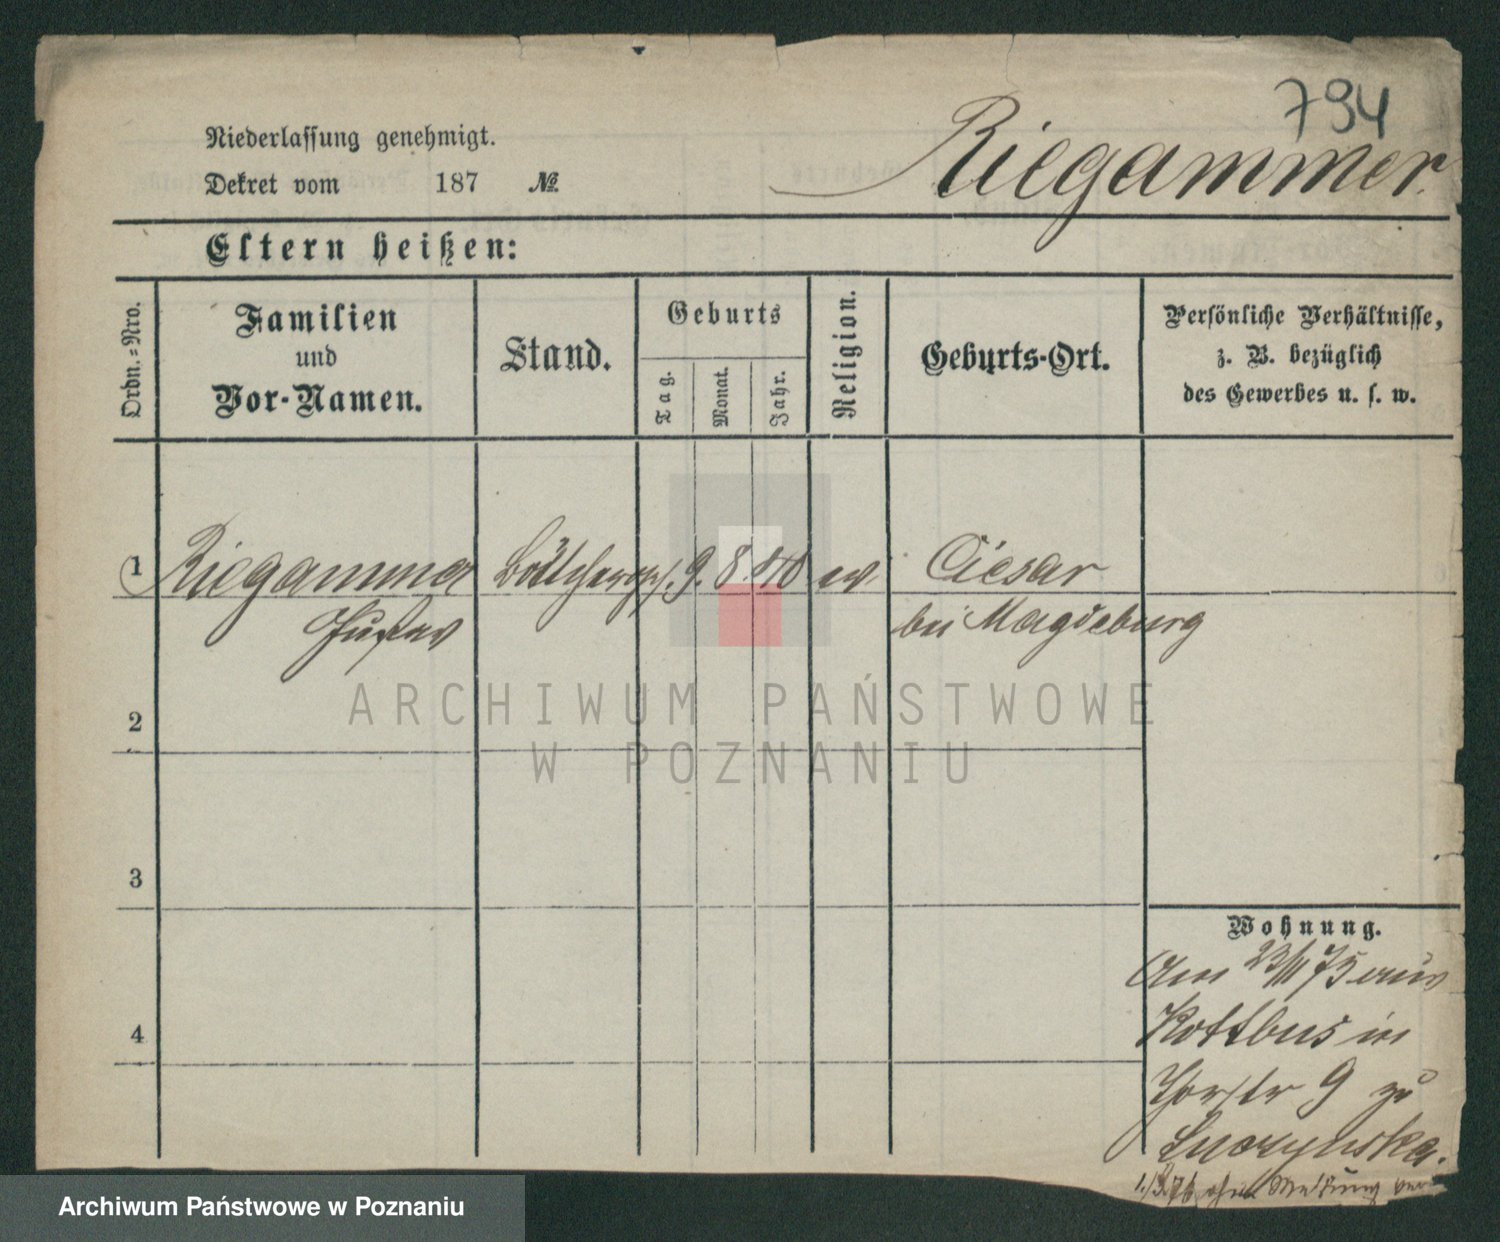 794
Niederlassung genehmigt.
Dekret vom 187 №
Riegammer
Eltern heißen:
Ordn.-Nro.
Familien
und
Vor-Namen.
Stand.
Geburts
Tag.
Monat.
Jahr.
Religion.
Geburts-Ort.
Persönliche Verhältnisse,
z. B. bezüglich
des Gewerbes u. s. w.
1 Riegammer Böttcherges. 9. 8. ev. Ciesar
Gustav bei Magdeburg
2
3
4
Wohnung.
Am 23/11 75 aus
Kottbus in
Thorstr 9 zu
Luczynska.
ohne Meldung
ARCHIWUM PAŃSTWOWE
W POZNANIU
Archiwum Państwowe w Poznaniu